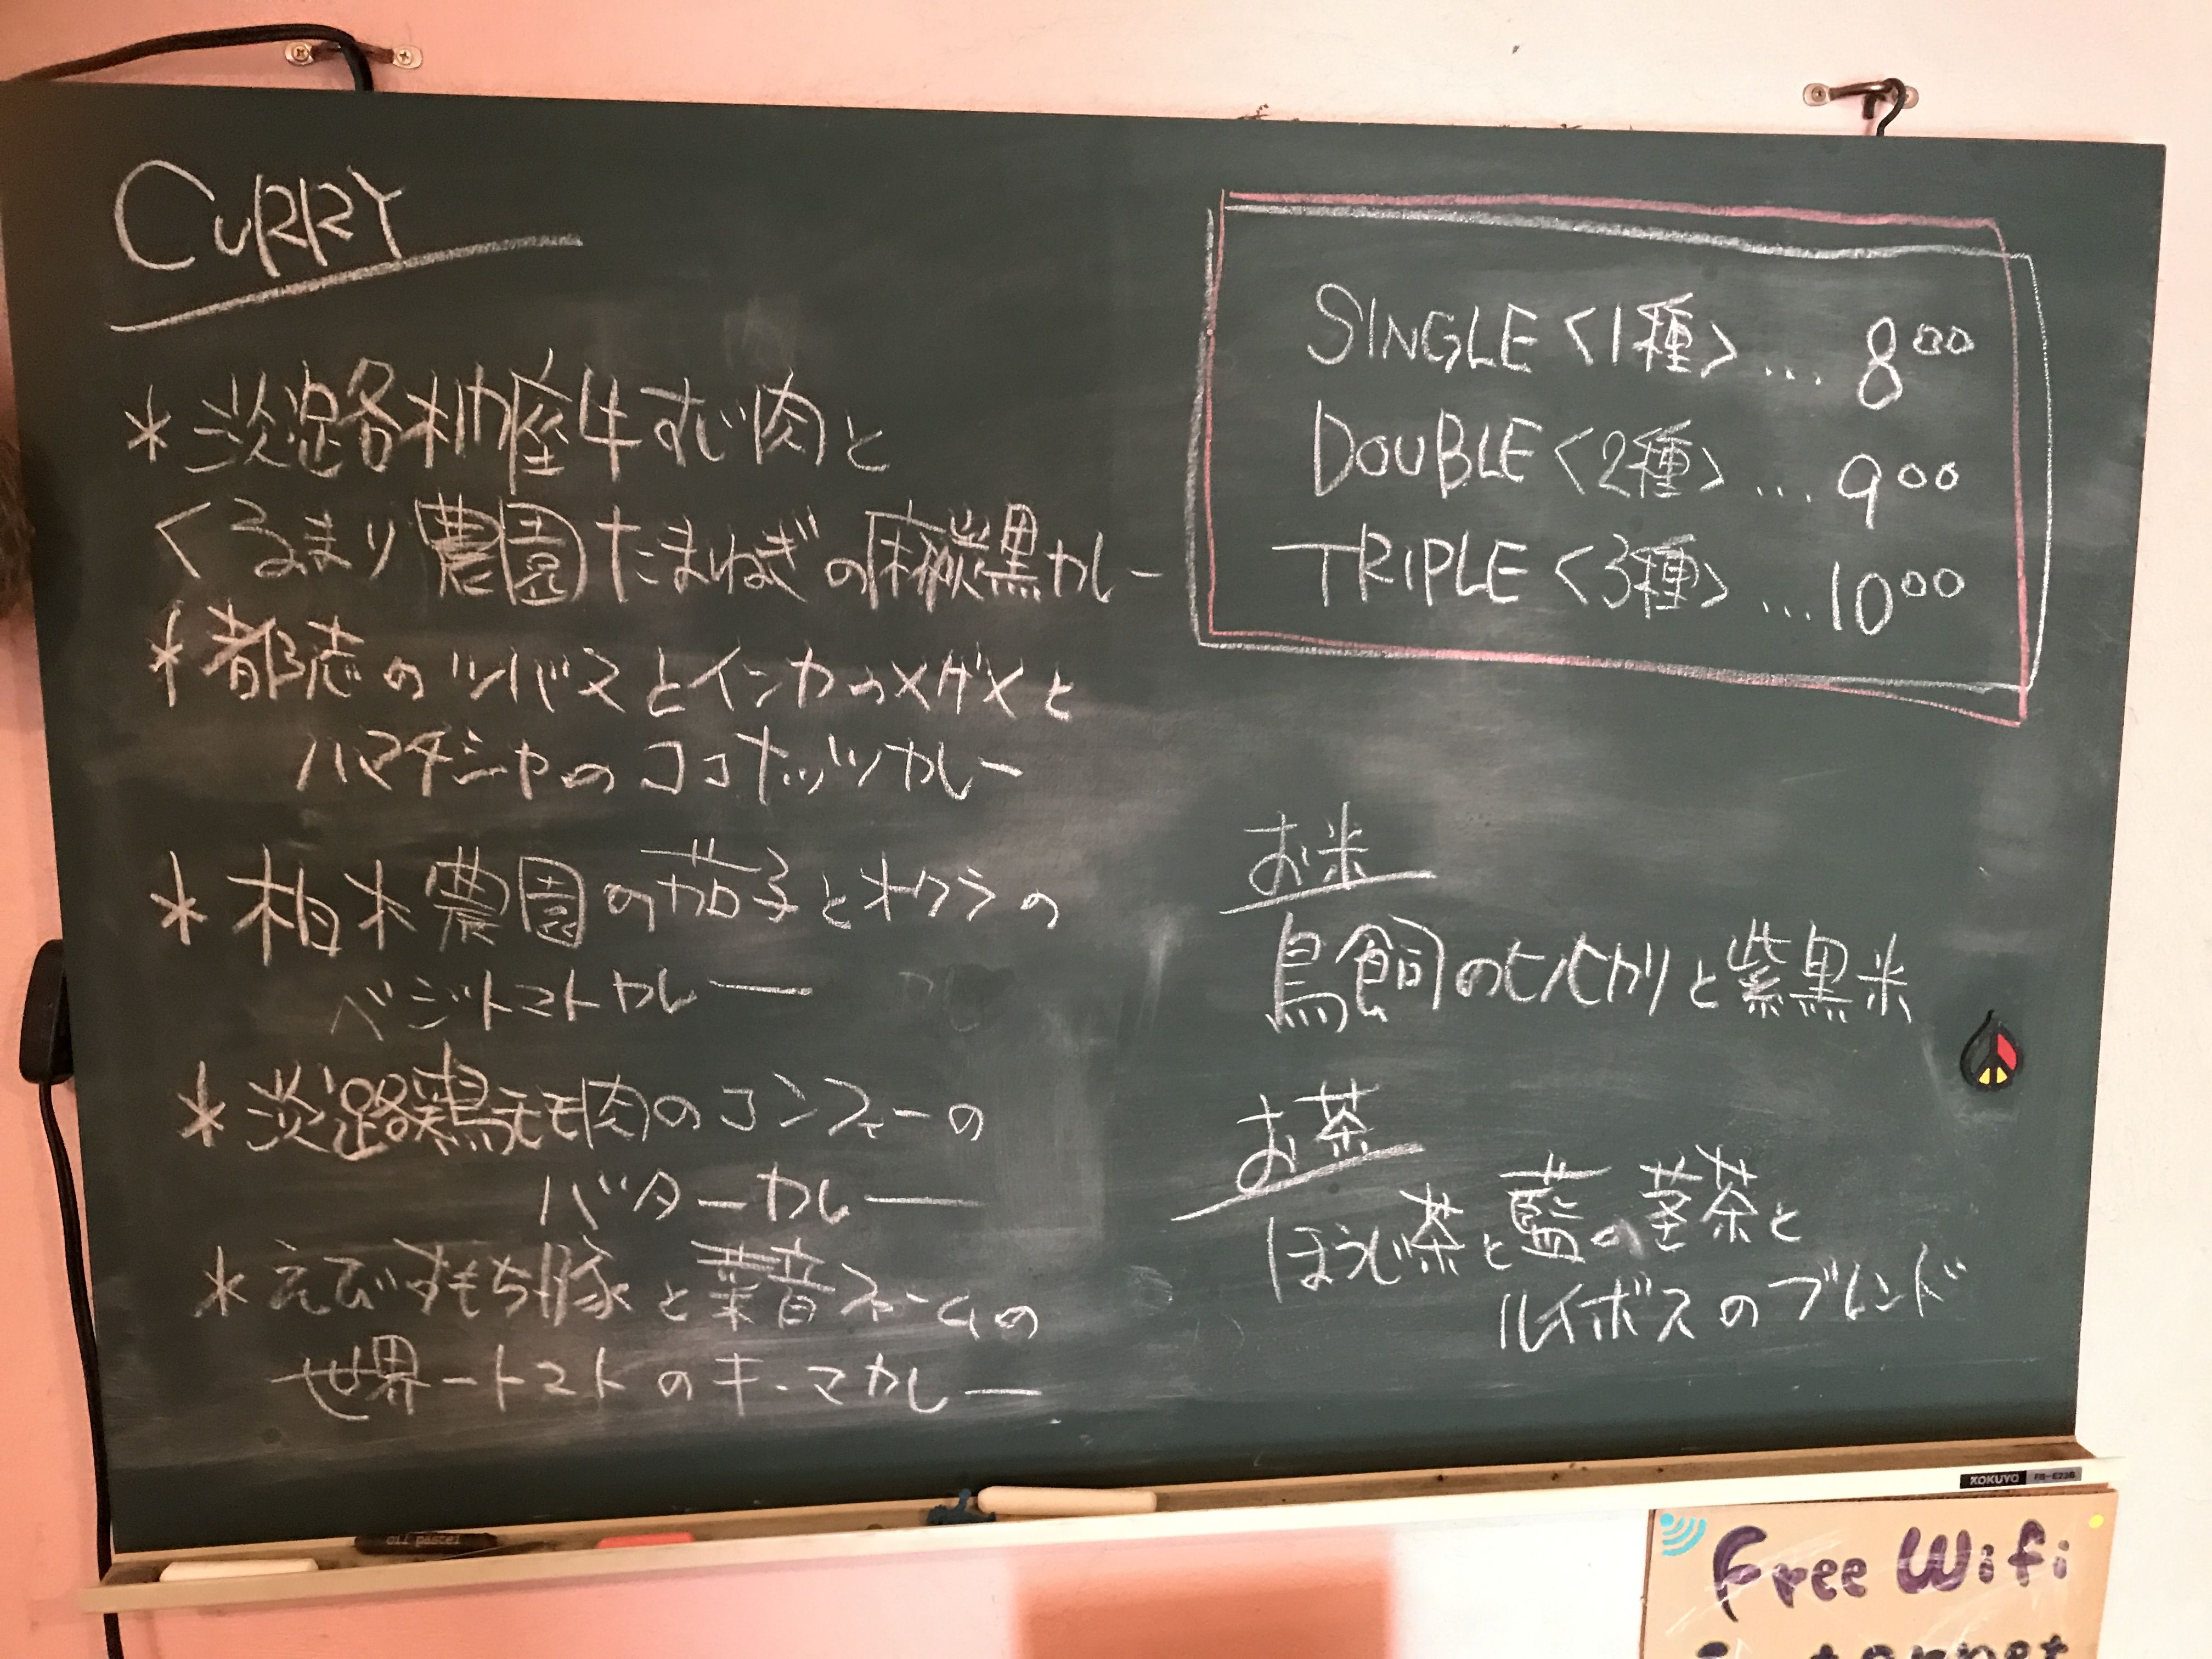 CURRY
*淡路和産牛すじ肉と
くるまり農園たまねぎの麻炭黒カレー
*都志のツバスとインカのメザメと
ハマチジャのココナッツカレー
*柏木農園の茄子とオクラの
ベジトマトカレー
*淡路鶏モモ肉のコンフィーの
バターカレー
*えびすもち豚と菜音ファームの
世界一トマトのキーマカレー
SINGLE<1種>...800
DOUBLE<2種>...900
TRIPLE<3種>...1000
お米
鳥飼のヒノヒカリと紫黒米
お茶
ほうじ茶と藍の茎茶と
ルイボスのブレンド
oil pastel
KOKUYO
Free Wifi
internet